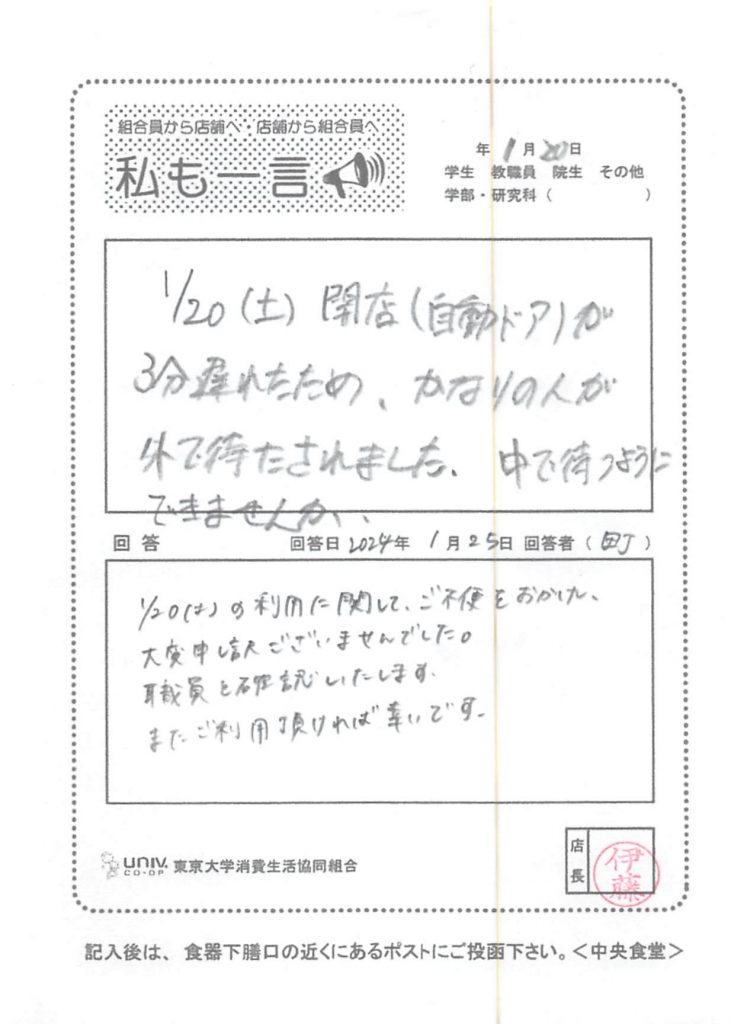 組合員から店舗へ・店舗から組合員へ
私も一言
年 1月20日
学生 教職員 院生 その他
学部・研究科（ ）
1/20(土) 開店(自動ドア)が
3分遅れたため、かなりの人が
外で待たされました、中で待つように
できませんか、
回答 回答日2024年 1月25日 回答者（田丁）
1/20(土)の利用に関して、ご不便をおかけし、
大変申し訳ございませんでした。
職員と確認いたします。
またご利用頂ければ幸いです。
UNIV. CO-OP 東京大学消費生活協同組合
店長 伊藤
記入後は、食器下膳口の近くにあるポストにご投函下さい。＜中央食堂＞